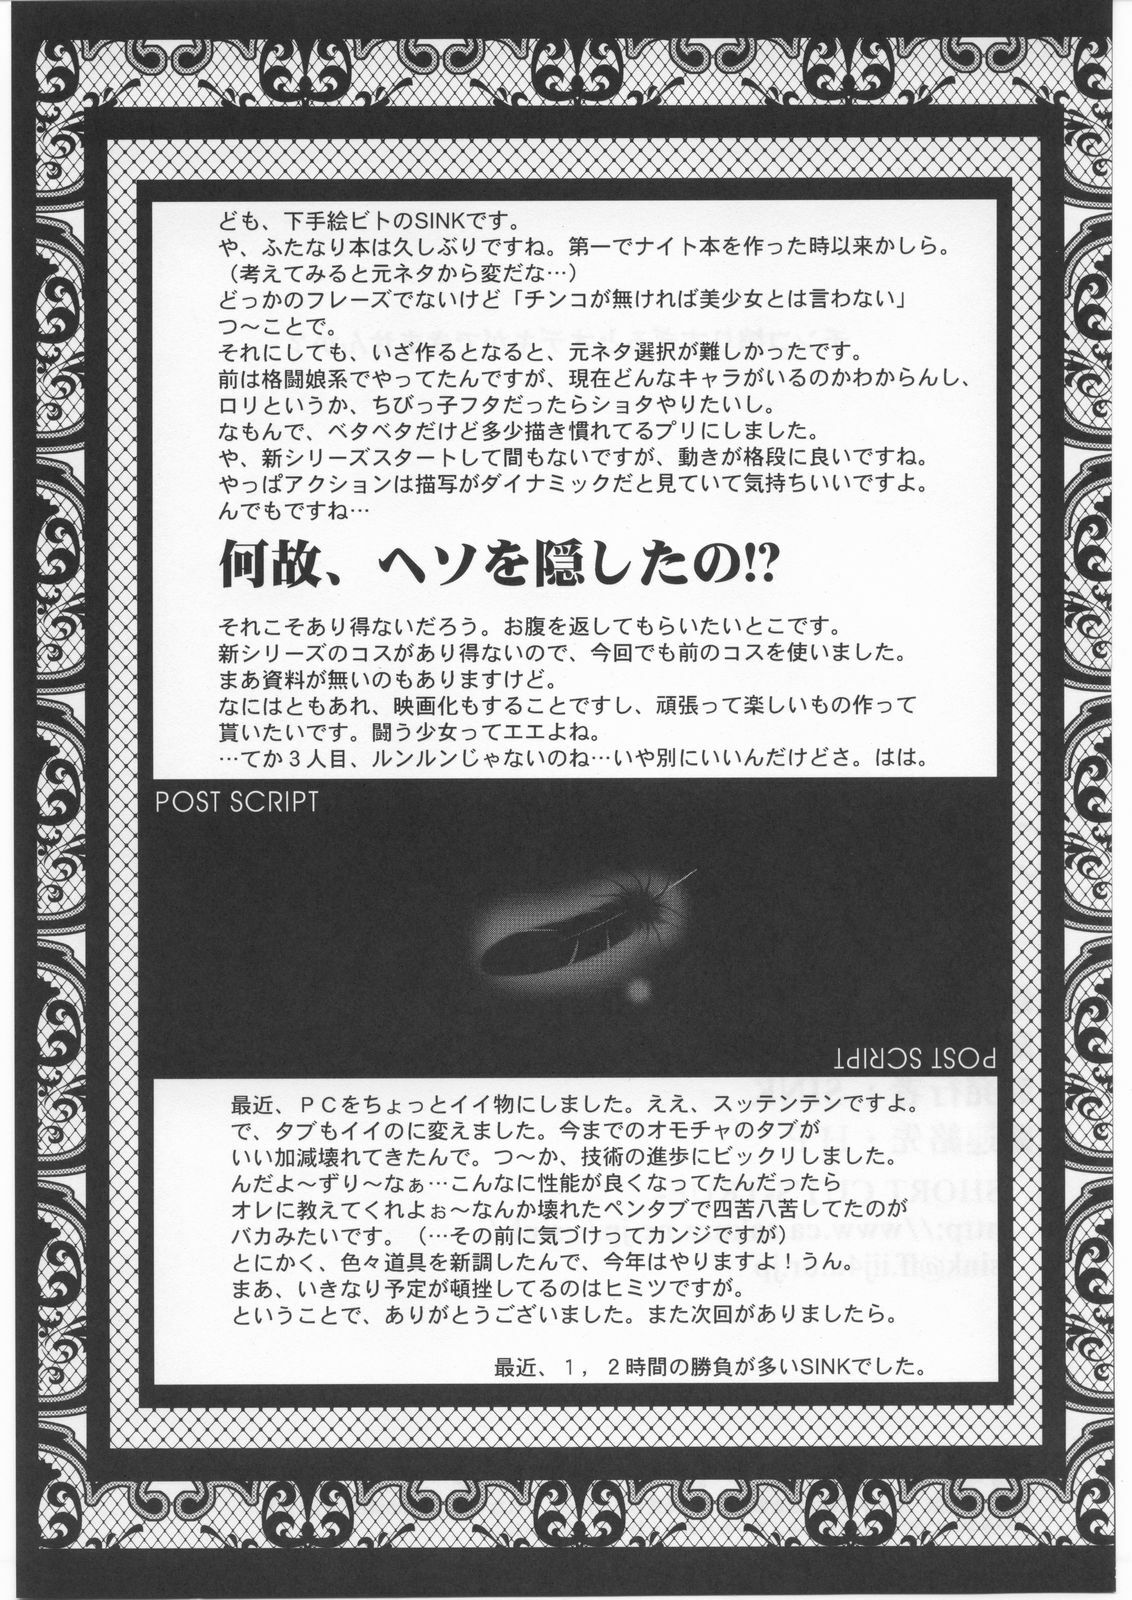 ども、下手絵ビトのSINKです。
や、ふたなり本は久しぶりですね。第一でナイト本を作った時以来かしら。
（考えてみると元ネタから変だな…）
どっかのフレーズでないけど「チンコが無ければ美少女とは言わない」
つ～ことで。
それにしても、いざ作るとなると、元ネタ選択が難しかったです。
前は格闘娘系でやってたんですが、現在どんなキャラがいるのかわからんし、
ロリというか、ちびっ子フタだったらショタやりたいし。
なもんで、ベタベタだけど多少描き慣れてるプリにしました。
や、新シリーズスタートして間もないですが、動きが格段に良いですね。
やっぱアクションは描写がダイナミックだと見ていて気持ちいいですよ。
んでもですね…
何故、ヘソを隠したの!?
それこそあり得ないだろう。お腹を返してもらいたいとこです。
新シリーズのコスがあり得ないので、今回でも前のコスを使いました。
まあ資料が無いのもありますけど。
なにはともあれ、映画化もすることですし、頑張って楽しいもの作って
貰いたいです。闘う少女ってエエよね。
…てか３人目、ルンルンじゃないのね…いや別にいいんだけどさ。はは。
POST SCRIPT
POST SCRIPT
最近、ＰＣをちょっとイイ物にしました。ええ、スッテンテンですよ。
で、タブもイイのに変えました。今までのオモチャのタブが
いい加減壊れてきたんで。つ～か、技術の進歩にビックリしました。
んだよ～ずり～なぁ…こんなに性能が良くなってたんだったら
オレに教えてくれよぉ～なんか壊れたペンタブで四苦八苦してたのが
バカみたいです。（…その前に気づけってカンジですが）
とにかく、色々道具を新調したんで、今年はやりますよ！うん。
まあ、いきなり予定が頓挫してるのはヒミツですが。
ということで、ありがとうございました。また次回がありましたら。
最近、１，２時間の勝負が多いSINKでした。